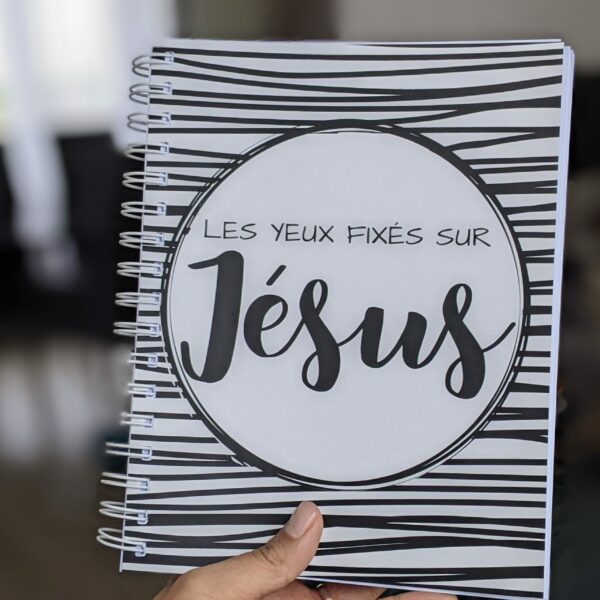 LES YEUX FIXÉS SUR
Jésus